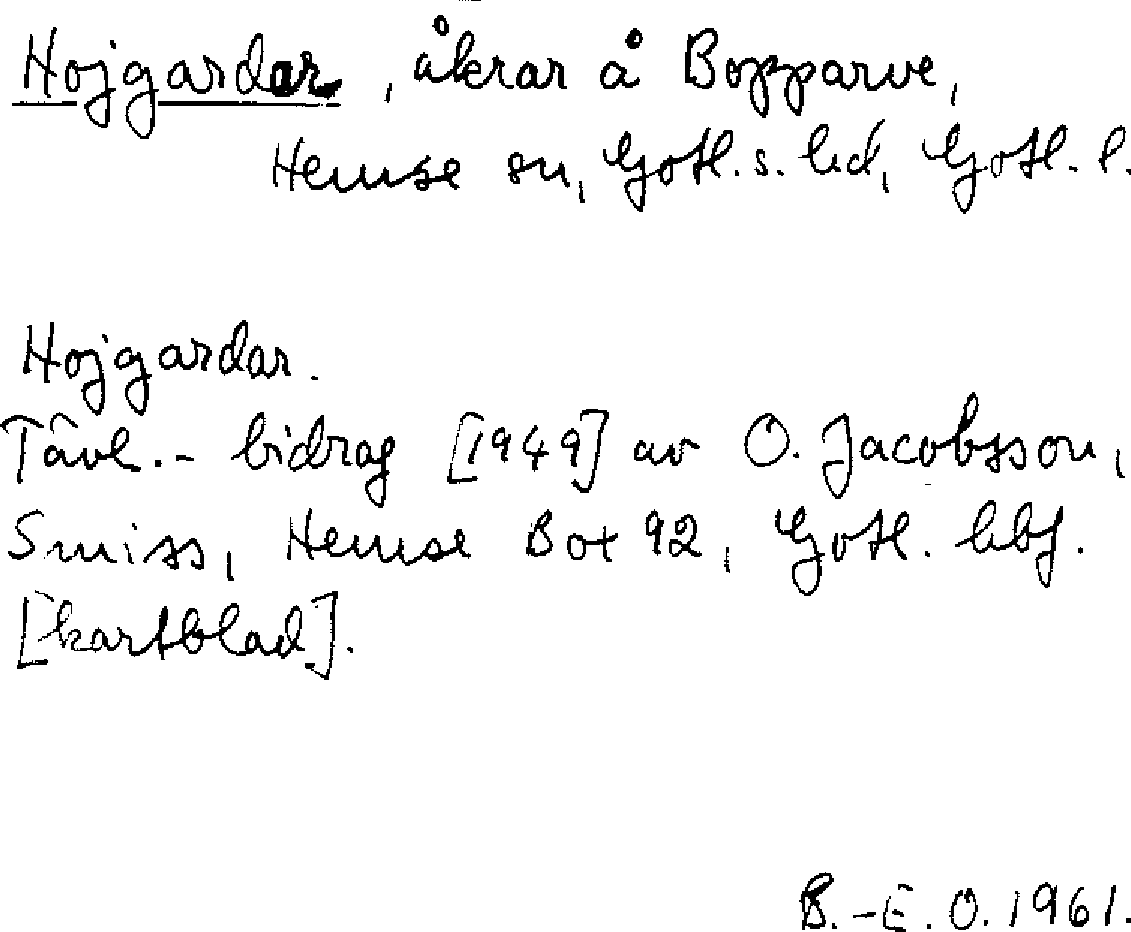 Hojgardar, åkrar å Bopparve,
Hemse sn, Gotl. s. hd, Gotl. l.
Hojgardar.
Tävl.-bidrag [1949] av O. Jacobsson,
Smiss, Hemse Box 92, Gotl. hbf.
[kartblad].
B.-E. O. 1961.